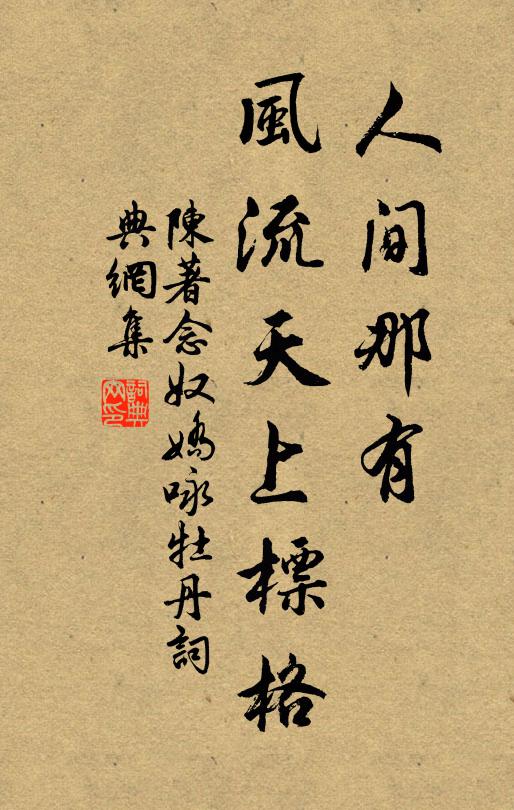 人間那有
風流天上標格
陳著念奴嬌咏牡丹詞
典網集
詞典網印